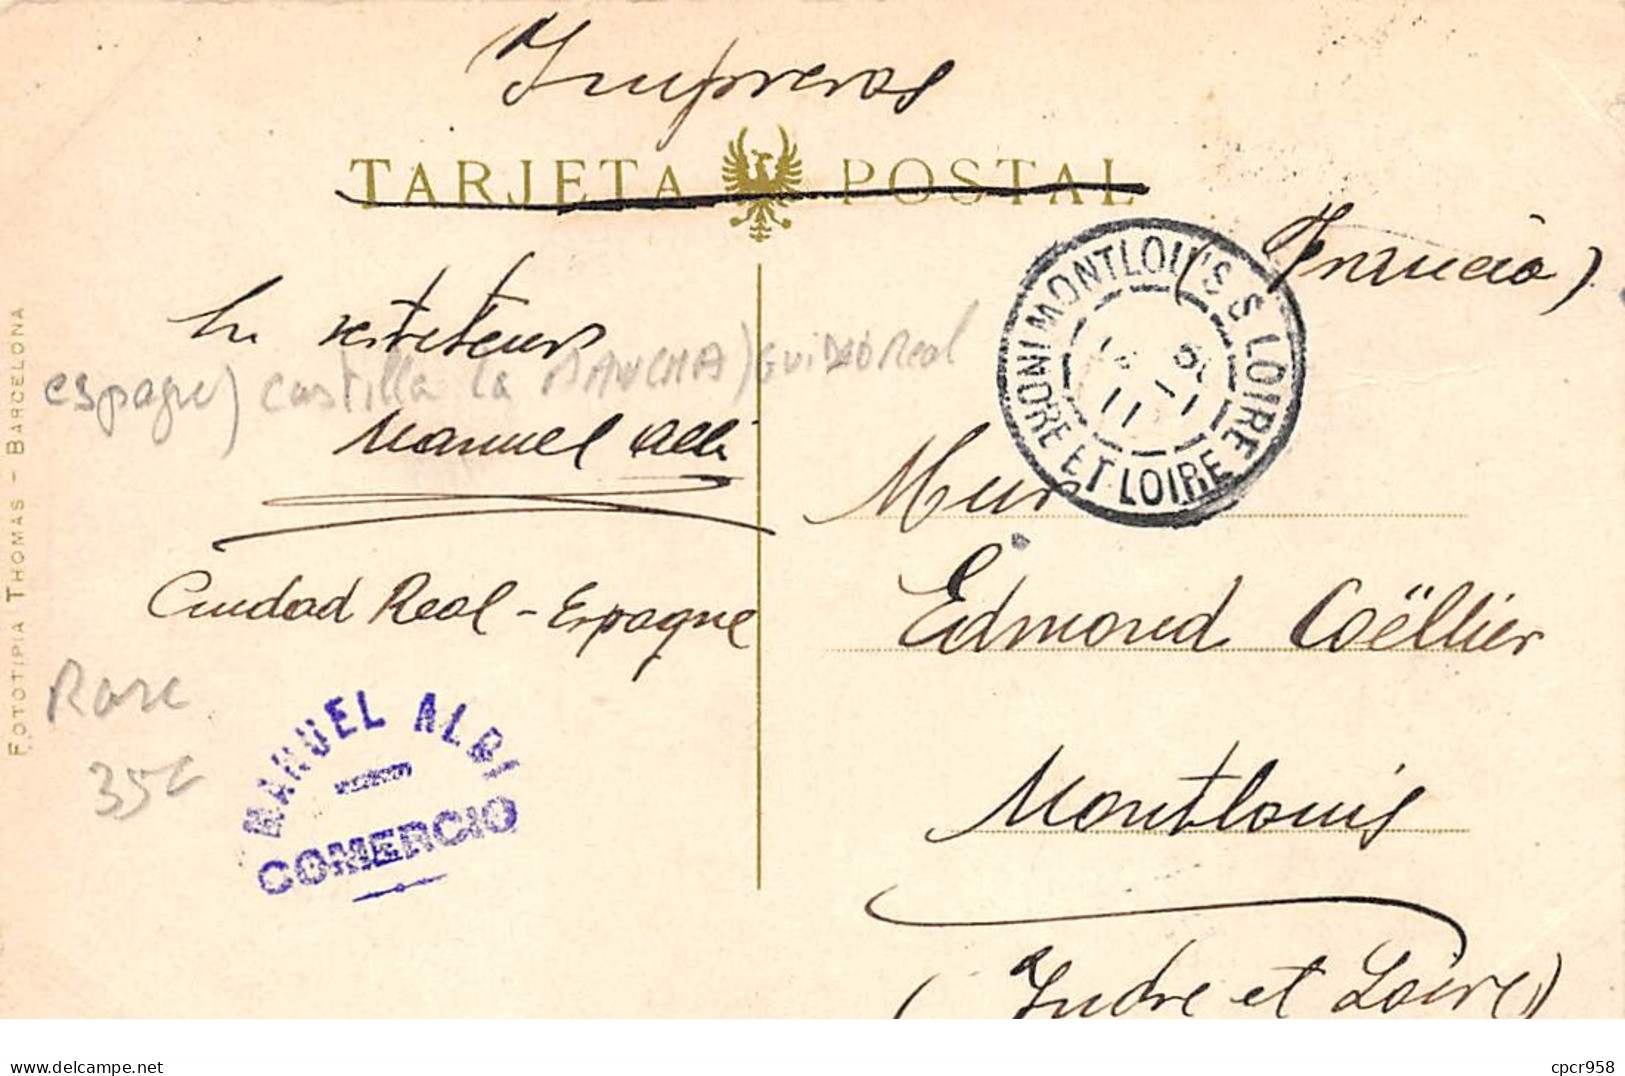 Impresos
TARJETA POSTAL
(Francia)
MONTLOUIS S LOIRE
INDRE ET LOIRE
11
espagne) castilla la MANCHA) Real
Manuel Albi
Ciudad Real - Espagne
Rare
35€
MANUEL ALBI
COMERCIO
FOTOTIPIA THOMAS - BARCELONA
Mur
Edmond Coëllier
Montlouis
(Indre et Loire)
delcampe.net
cpcr958